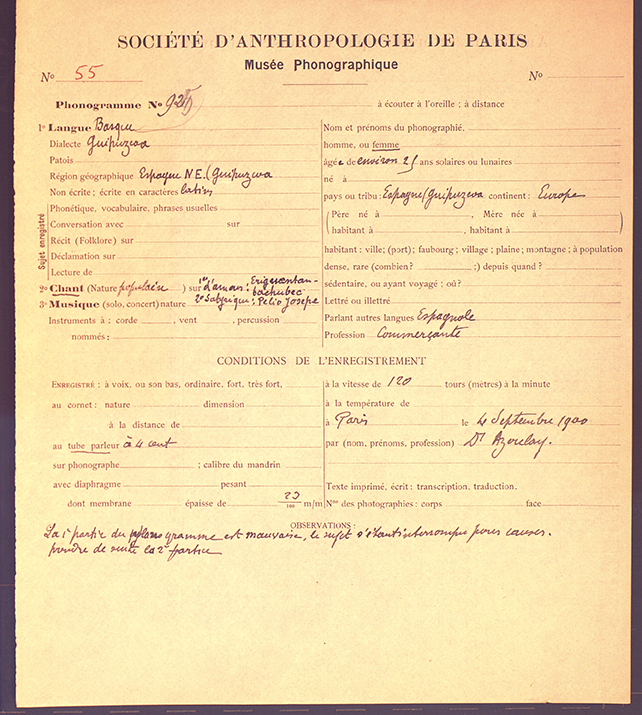 SOCIÉTÉ D'ANTHROPOLOGIE DE PARIS
Musée Phonographique
No 55
No
Phonogramme No à écouter à l'oreille ; à distance
1o Langue Basque
Dialecte Guipuzcoa
Patois
Région géographique Espagne N.E. (Guipuzcoa
Non écrite ; écrite en caractères latins
Phonétique, vocabulaire, phrases usuelles
Conversation avec sur
Récit (Folklore) sur
Déclamation sur
Lecture de
Sujet enregistré
2o Chant (Nature populaire ) sur 1er d'amour :
3o Musique (solo, concert) nature 2e Satyrique : Pelio Josepe
Instruments à : corde , vent , percussion
nommés :
Nom et prénoms du phonographié.
homme, ou femme
âgée de environ 25 ans solaires ou lunaires
né à
pays ou tribu : Espagne/Guipuzcoa continent : Europe
(Père né à , Mère née à
habitant à , habitant à )
habitant : ville ; (port) ; faubourg ; village ; plaine ; montagne ; à population
dense, rare (combien? ;) depuis quand ?
sédentaire, ou ayant voyagé ; où?
Lettré ou illettré
Parlant autres langues Espagnole
Profession Commerçante
CONDITIONS DE L'ENREGISTREMENT
ENREGISTRÉ : à voix, ou son bas, ordinaire, fort, très fort,
au cornet : nature dimension
à la distance de
au tube parleur à 4 cent
sur phonographe ; calibre du mandrin
avec diaphragme pesant
dont membrane épaisse de 23/100 m/m
à la vitesse de 120 tours (mètres) à la minute
à la température de
à Paris le 4 Septembre 1900
par (nom, prénoms, profession) Dr Azoulay.
Texte imprimé, écrit : transcription, traduction.
Nos des photographies : corps face
OBSERVATIONS :
La 1e partie du phonogramme est mauvaise, le sujet s'étant interrompu pour causer.
prendre de suite la 2e partie